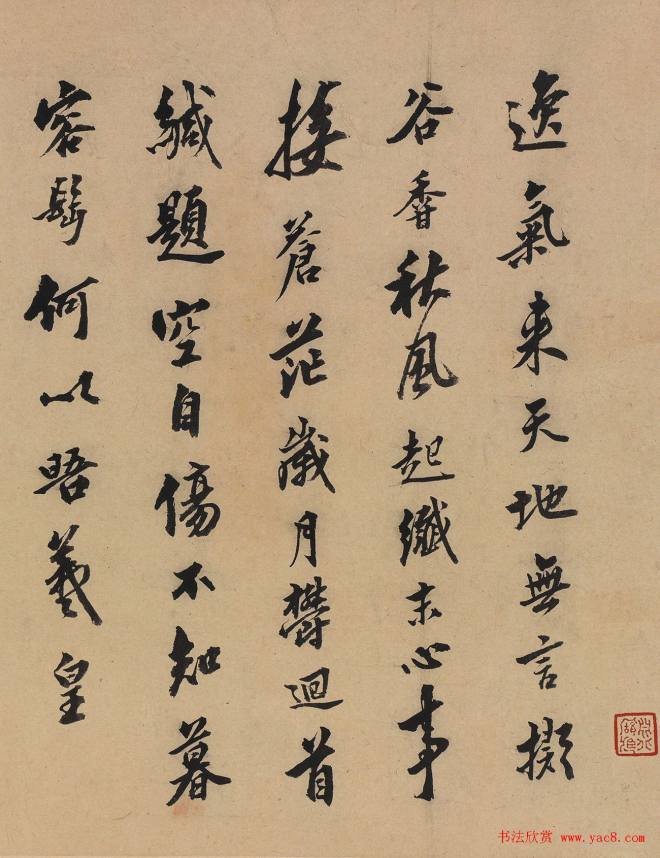 逸氣来天地無言擬
谷香秋風起纖末心事
接蒼茫歲月鬱迴首
緘題空自傷不知暮
容髩何以晤羲皇
书法欣赏 www.yac8.com